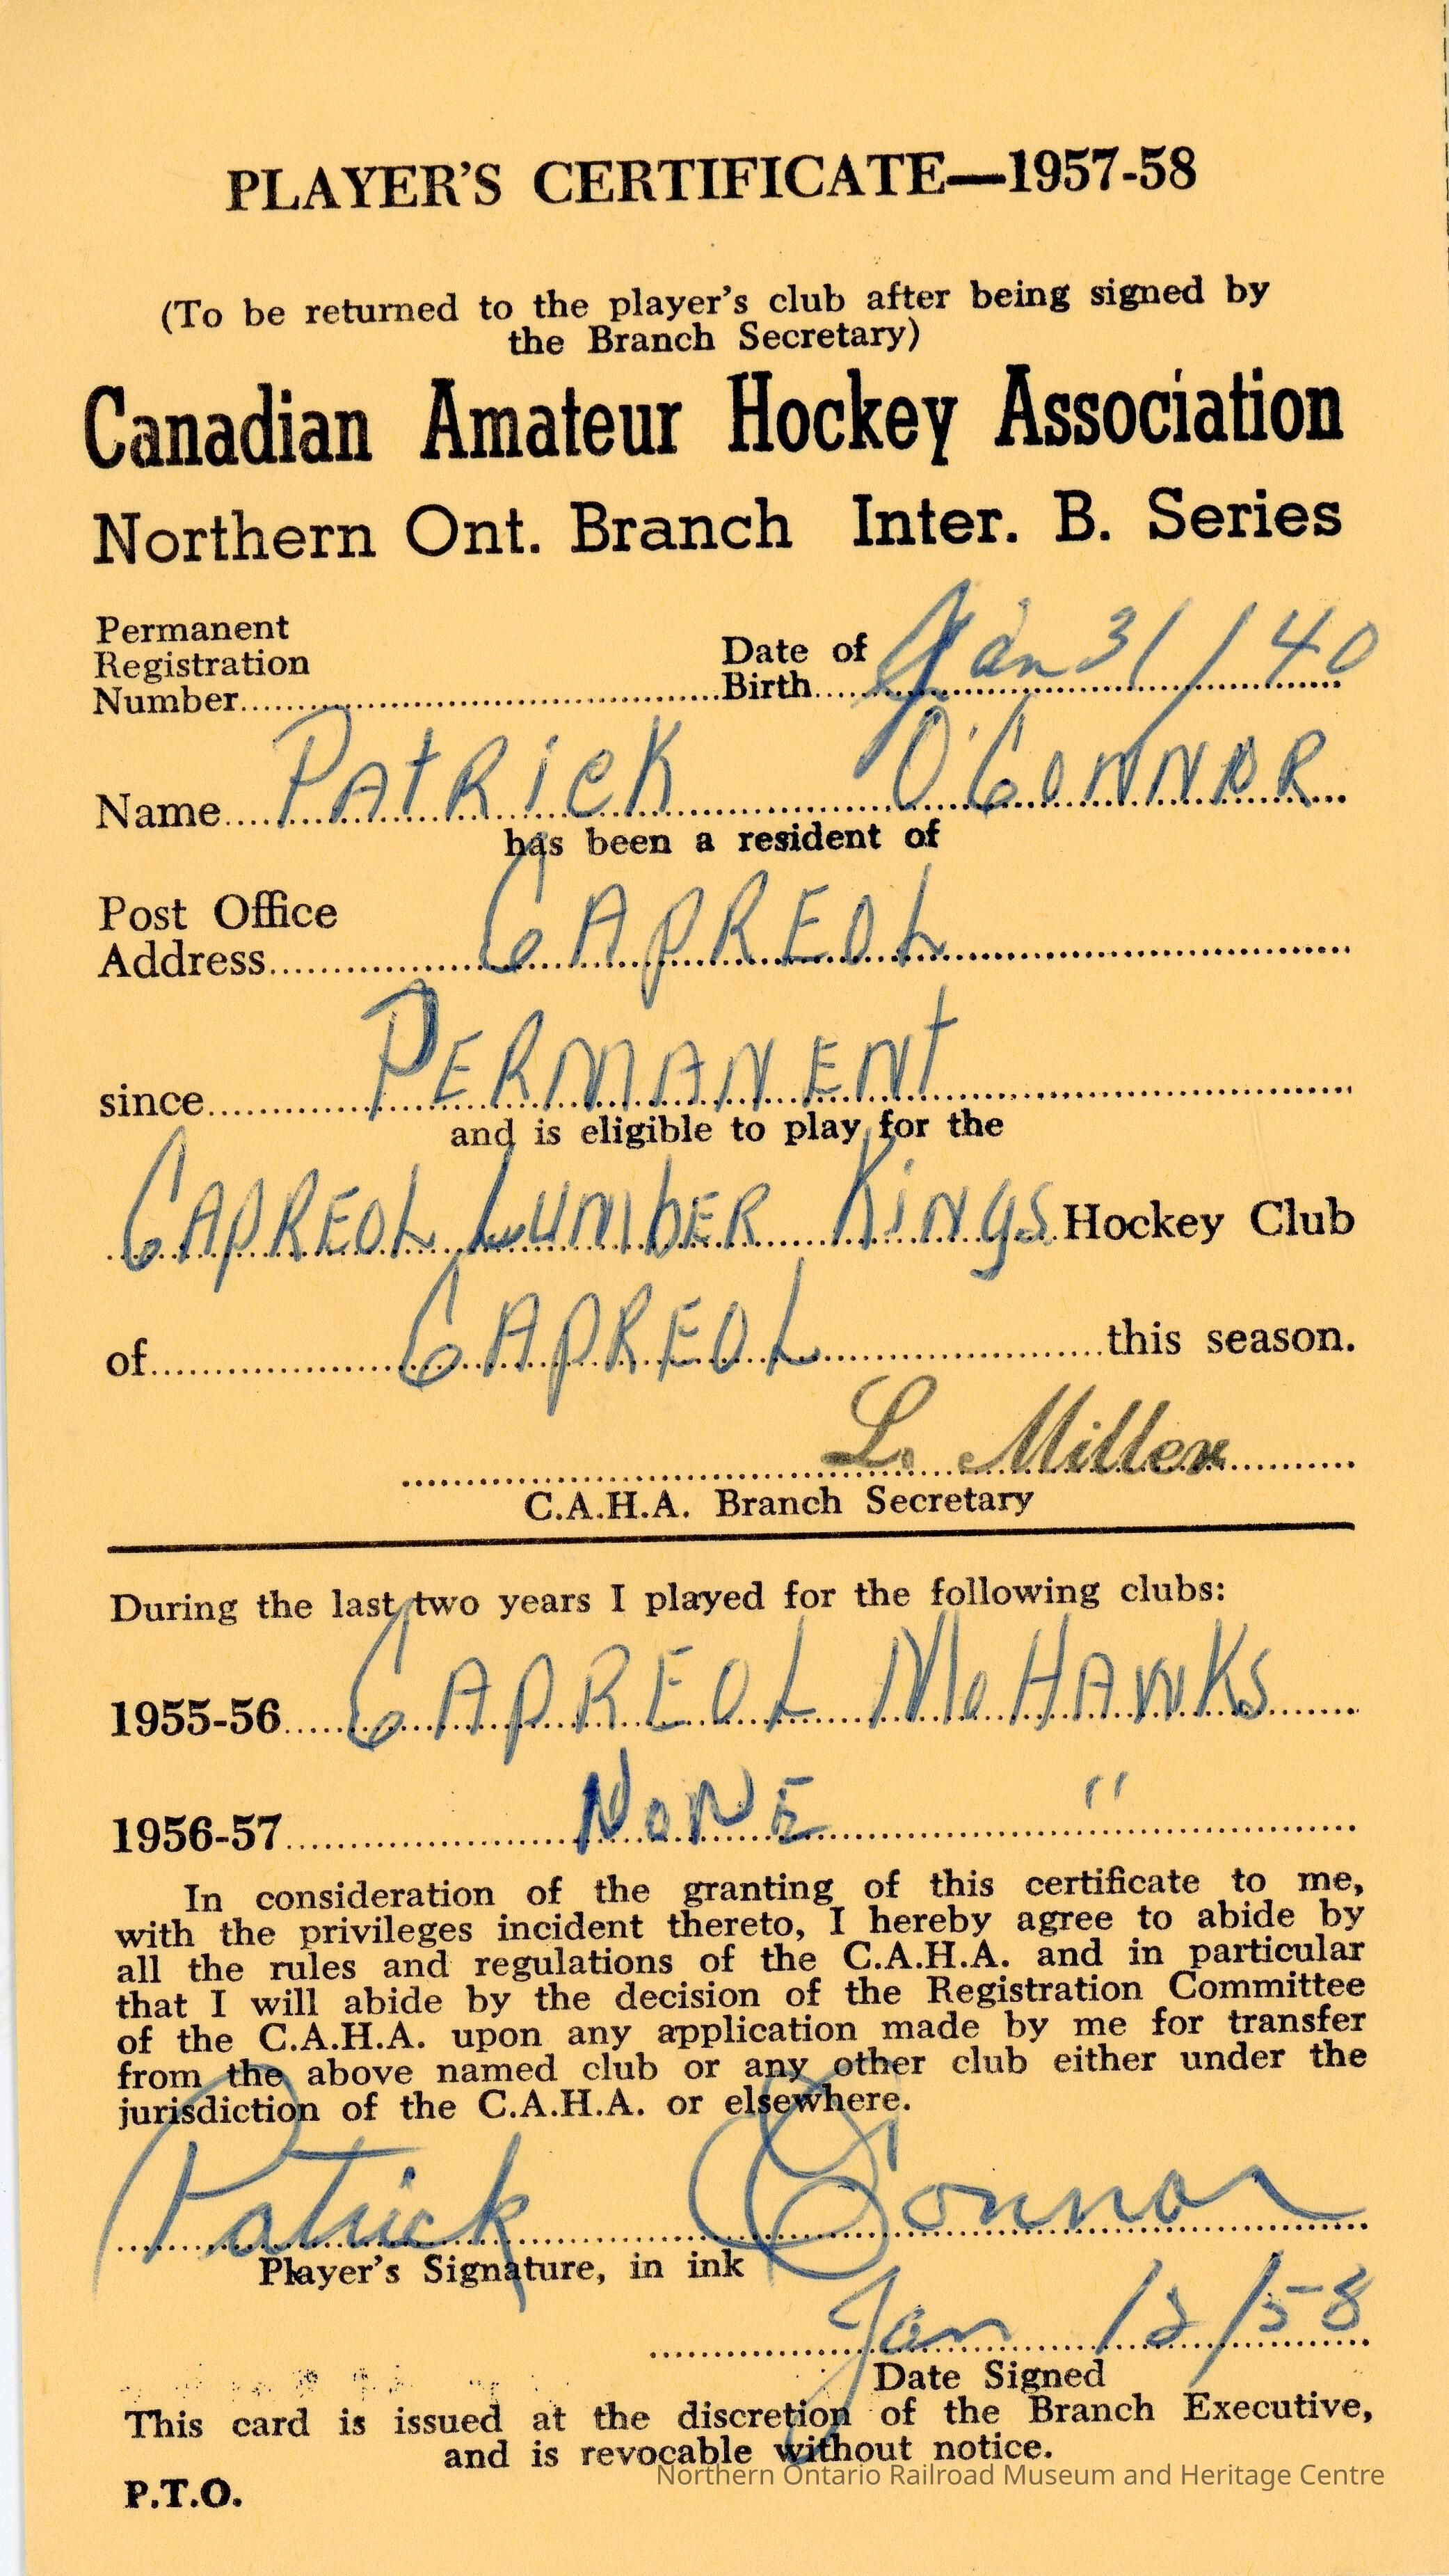 PLAYER'S CERTIFICATE—1957-58
(To be returned to the player's club after being signed by
the Branch Secretary)
Canadian Amateur Hockey Association
Northern Ont. Branch Inter. B. Series
Permanent
Registration
Number
Date of
Birth Jan 31/40
Name PATRICK O'CONNOR
has been a resident of
Post Office
Address CAPREOL
since PERMANENT
and is eligible to play for the
CAPREOL LUMBER KINGS Hockey Club
of CAPREOL this season.
L. Miller
C.A.H.A. Branch Secretary
During the last two years I played for the following clubs:
1955-56 CAPREOL MOHAWKS
1956-57 NONE "
In consideration of the granting of this certificate to me,
with the privileges incident thereto, I hereby agree to abide by
all the rules and regulations of the C.A.H.A. and in particular
that I will abide by the decision of the Registration Committee
of the C.A.H.A. upon any application made by me for transfer
from the above named club or any other club either under the
jurisdiction of the C.A.H.A. or elsewhere.
Patrick O'Connor
Player's Signature, in ink
Jan 12/58
Date Signed
This card is issued at the discretion of the Branch Executive,
and is revocable without notice.
Northern Ontario Railroad Museum and Heritage Centre
P.T.O.